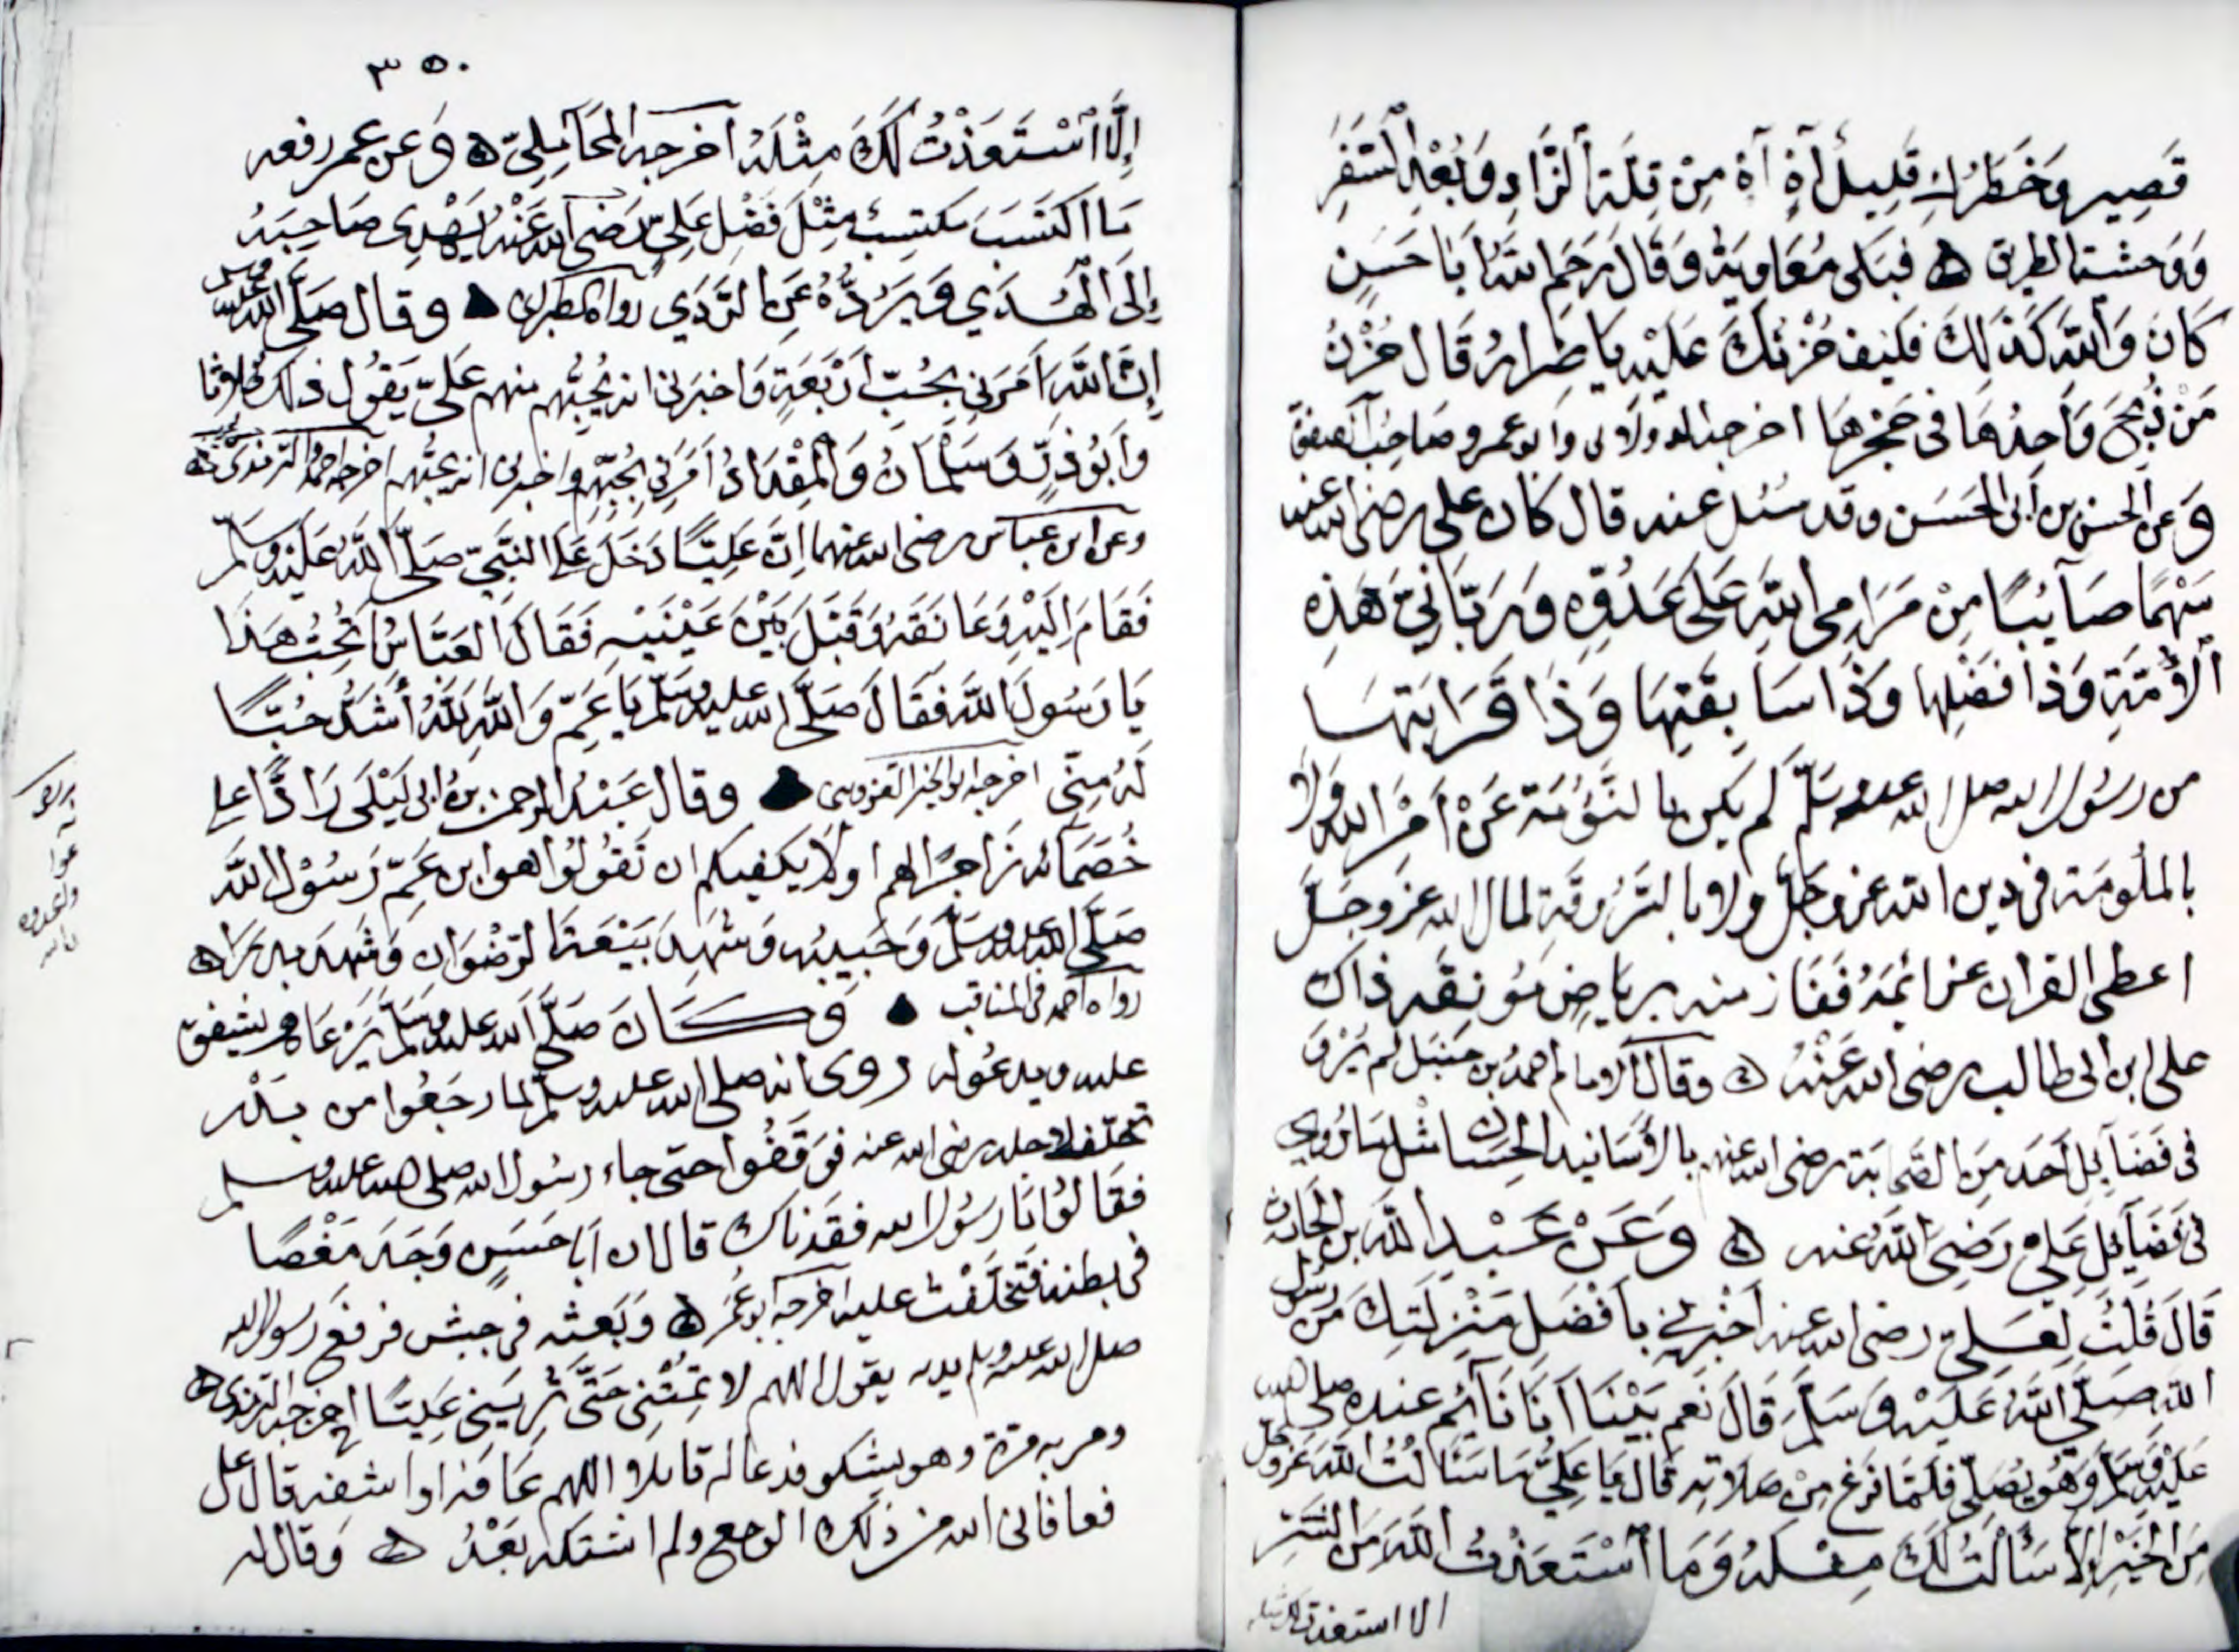 قَصِير وَخَطَرُكِ قَلِيلٌ آهٍ آهٍ مِنْ قِلَّةِ ٱلزَّادِ وَبُعْدِ ٱلسَّفَرِ
وَوَحْشَة الطريق ۵ فبَكى مُعَاوِيَةُ وَقَالَ رَحِمَ اللهُ أَبَا حَسَنٍ
كَانَ وَٱللهِ كَذَلِكَ فكيف حُزْنُكَ عَلَيْهِ يَا ضِرارُ قَال حُزْنُ
مَنْ ذُبِحَ وَاحِدُهَا فى حِجْرِهَا اخرجه الدولابى وابو عمر وصاحب الصفوة
وَعن الحسن بن أبى الحَسَن وقد سُئل عنه قال كان على رضى الله عنه
سَهْمًا صَائِبًا مِنْ مَرَامِى اللهِ عَلَى عَدُوِّهِ وَرَبَّانِيَّ هَذِهِ
ٱلأُمَّةِ وَذَا فَضْلِها وَذَا سَابِقَتِهَا وَذَا قَرَابَتِهَا
من رسُول الله صلى الله عليه وسلّم لم يكن بالنَّؤُمَةِ عَنْ أَمْرِ الله وَلَا
بالملُومَة فى دين الله عز وجلّ ولا بالسَّرُوقَةِ لمال الله عز وجلّ
اعطى القران عزائمَهُ ففَاز منه برياضٍ مُونِقَه ذاك
على ابن ابى طالب رضى الله عَنْهُ ۵ وقال الامام احمد بن حنبل لم يُرْوَ
فى فَضَآئِل أحَد مِنَ الصَّحابَة رضى الله عنهم بالأَسَانيد الحِسَان مثل مَا رُوى
فى فَضَآئِل عَلِى رَضِىَ اللَّهُ عنه ۵ وَعَنْ عَبْدِ اللَّهِ بن الحارث
قَالَ قُلْتُ لِعَلِىّ رضى الله عنه أَخْبِرْنى بأَفْضَل مَنْزِلَتِكَ مِن رسول
اللهِ صَلَّى اللهُ عَلَيْهِ وَسَلَّمَ قَالَ نَعَم بَيْنَا أَنَا نَآئِم عنده صلى الله
عَلَيْه وَسَلَّمَ وَهُوَ يُصَلِّى فَلَمَّا فَرَغ مِنْ صَلَاتِه قَال يَا عَلِىُّ مَا سَأَلْتُ اللهَ عَزَّ وجل
مِنَ الخَيْرِ إِلاَّ سَأَلْتُ لَكَ مِثْلَهُ وَمَا ٱسْتَعَذْتُ اللهَ مِنَ الشَّرِّ
الا استعذت لك مثله
٣٥٠
إِلَّا ٱسْتَعَذْتُ لَكَ مِثْلَهُ اخرجه المحَامِلِىّ ۵ وَعن عمر رفعه
مَا اكتَسَبَ مكتسِبٌ مِثْلَ فَضْل عَلِىّ رَضى الله عَنْهُ يَهْدِى صَاحِبَهُ
إِلَى الْهُدَي وَيَرُدُّهُ عَن الرَّدَي رواه الطبرانى وقال صَلَّى اللهُ عليه وسلم
إِنَّ اللَّهَ أَمَرَنِى بِحُبِّ أَرْبَعَةٍ وَاخبرنى انه يُحِبُّهُم منهم عَلىّ يَقُول ذلك ثلاثا
وَأَبُو ذرٍّ وَسَلْمَانُ وَالْمِقْدَادُ أَمَرَنِى بِحُبِّهِم واخبرنى انه يحبُّهم اخرجه احمد الترمذى
وعن ابن عباس رضى الله عنهما انّ عَلِيًّا دَخَلَ عَلَى النَّبِىّ صَلَّى اللَّهُ عَلَيْهِ وسَلَّم
فَقَامَ إلَيْهِ وَعَانَقَهُ وَقَبَّلَ بَيْنَ عَيْنَيْهِ فَقَالَ العَبَّاسُ أتُحِبُّ هَذَا
يَا رَسُولَ اللهَ فقَالَ صَلَّى الله عليه وسَلَّم يَا عَمِّ وَاللَّهِ لَلَّهُ أَشَدُّ حُبًّا
لَهُ مِنِّى اخرجه ابو الخير القزوينى وقال عَبْدُ الرحمن بن ابى لَيْلَى رَادًّا على
خُصَمَائه زَاجرًا لهم اولا يكفيكم ان تَقُولُوا هو ابن عَمّ رَسُوْل اللهَ
صَلَّى الله عليه وسَلَّم وَحَبِيبُه وَشَهِدَ بَيْعَةَ الرّضْوَان وَشَهِدَ بدرًا ۵
رواه احمد فى المناقب وَكَانَ صَلَّى الله عليه وسَلَّم يَرْعَاه ويشفق
عليه ويدعُو له رُوى انه صلى الله عليه وسلّم لما رجَعُوا من بَدْر
تخلّف لاجله رضى الله عنه فوَقَفُوا حتى جاء رسُول الله صلى الله عليه وسلم
فقَالُوا يَا رسُول الله فقَدناك قال ان أبَا حَسَنٍ وَجَدَ مَغْصًا
فى بطنه فَتَخَلَّفْتُ عليه اخرجه ابو عُمَر ۵ وَبَعَثه فى جيش فرفَع رسول الله
صلى الله عليه وسلم يديه يقول اللهم لا تمِتْنِى حَتَّى تُرِيَنِى عَلِيًّا اخرجه الترمذى ۵
ومر به مرّة وهو يشكو فدعَا له قائلا اللهم عَافه او اشفه قال على
فعافانى الله من ذلك الوجع ولم اشتكه بَعْدُ ۵ وَقال له